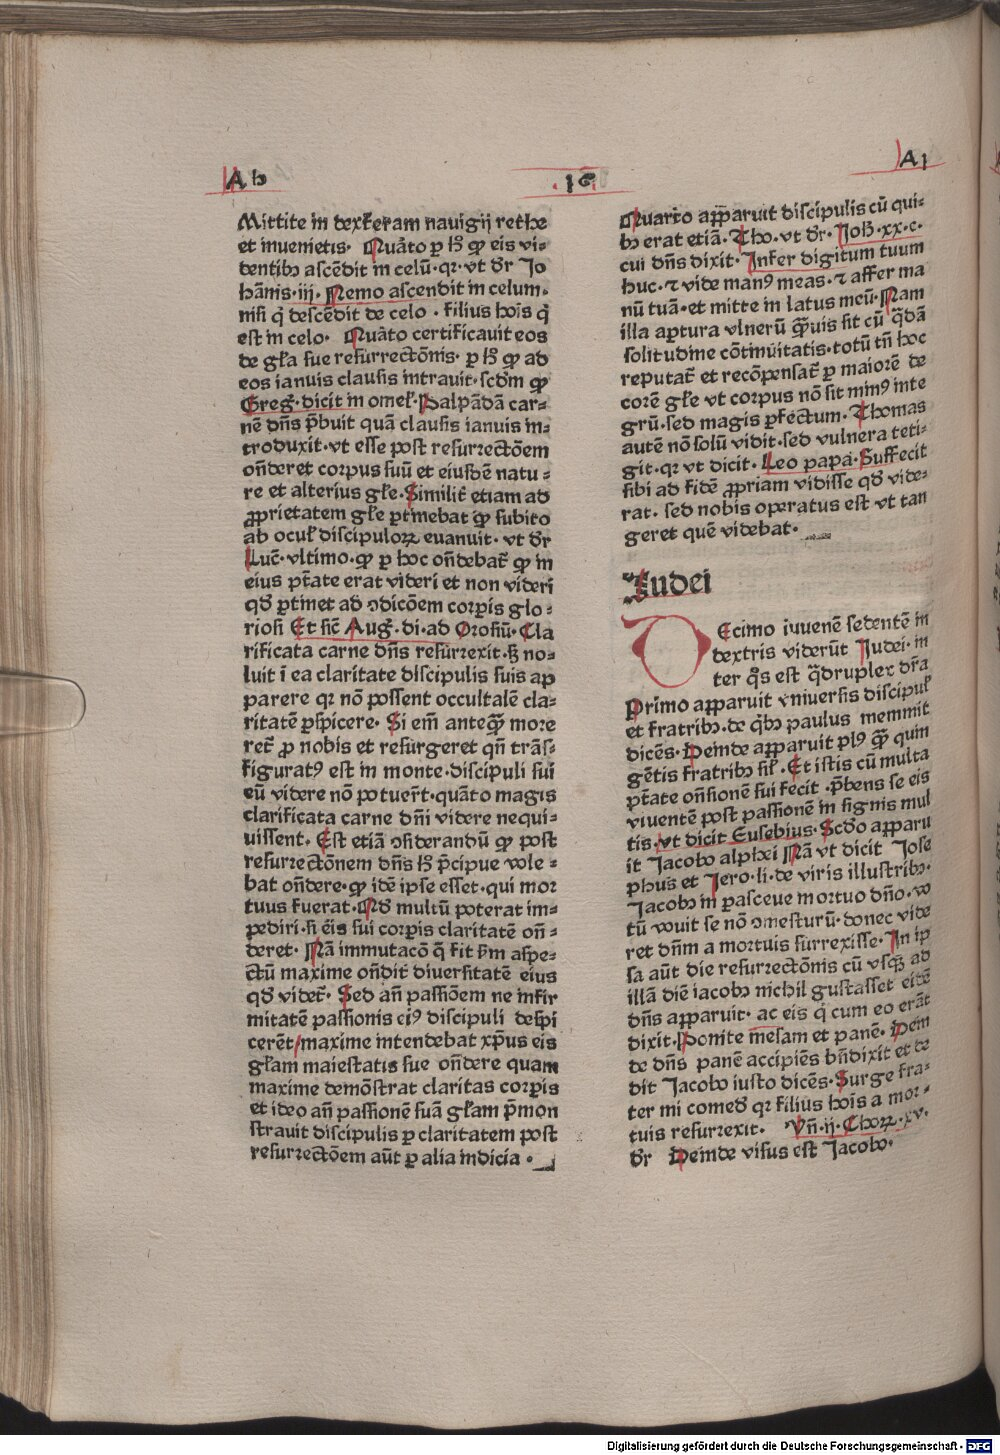 A h
.1e.
A i
Mittite in dexteram nauigij rethe
et inuenietis. Quāto p̱ hͦ ꝙ eis vi-
dentibꝫ ascēdit in celū. qꝛ. vt dr̄ Jo
hānis. iij. Nemo ascendit in celum.
nisi q̇ descēdit de celo. filius hoīs q̇
est in celo. Quāto certificauit eos
de gl̄a sue resurrectōnis. p̱ hͦ ꝙ ad
eos ianuis clausis intrauit. scd̄m ꝙ
Greḡ. dicit in omel̄. Palpādā car-
nē dn̄s p̄buit quā clausis ianuis in-
troduxit. vt esse post resurrectōem
on̄deret corpus suū et eiusdē natu-
re et alterius gl̄e. Similit̄ etiam ad
ꝓprietatem gl̄e ꝑtinebat ꝙ subito
ab ocul̄ discipuloꝝ euanuit. vt dr̄
Luc̄. vltimo. ꝙ ꝑ hoc on̄debat̄ ꝙ in
eius ptāte erat videri et non videri
qd̄ ꝑtinet ad ↄdicōem corꝑis glo-
riosi Et sic̄ Auḡ. di. ad Orosiū. Cla
rificata carne dn̄s resurrexit. sꝫ no-
luit ī ea claritate discipulis suis ap
parere qꝛ nō possent occultalē cla-
ritatē ꝑspicere. Si em̄ anteꝙ̄ more
ret̄ ꝓ nobis et resurgeret qn̄ trās-
figuratꝰ est in monte. discipuli sui
eū videre nō potuer̄t. quāto magis
clarificata carne dn̄i videre nequi-
uissent. Est etiā ↄsiderandū ꝙ post
resurrectōnem dn̄s hͦ p̄cipue vole-
bat on̄dere. ꝙ idē ipse esset. qui mor
tuus fuerat. Ad multū poterat im-
pediri. si eis sui corꝑis claritatē on̄-
deret. Nā immutacō q̄ fit ẜm aspe-
ctū maxime on̄dit diuersitatē eius
qd̄ videt̄. Sed an̄ passiōem ne infir
mitatē passionis eiꝰ discipuli despi
cerēt/maxime intendebat xp̄us eis
gl̄am maiestatis sue on̄dere quam
maxime demōstrat claritas corꝑis
et ideo an̄ passionē suā gl̄am p̄mon
strauit discipulis ꝑ claritatem post
resurrectōem aūt ꝑ alia indicia.
Quarto aꝑparuit discipulis cū qui-
bꝫ erat etiā. Tho. vt dr̄. Joh̄. xx. c.
cui dn̄s dixit. Infer digitum tuum
huc. ⁊ vide manꝰ meas. ⁊ affer ma
nū tuā. et mitte in latus meū. Nam
illa aꝑtura vlnerū q̄uis sit cū q̄dā
solitudine cōtinuitatis. totū tn̄ hoc
reputat̄ et recōpensat̄ ꝑ maiorē de
corē gl̄e vt corpus nō sit minꝰ inte
grū. sed magis ꝑfectum. Thomas
autē nō solū vidit. sed vulnera teti-
git. qꝛ vt dicit. Leo papa. Suffecit
sibi ad fidē ꝓpriam vidisse qd̄ vide-
rat. sed nobis operatus est vt tan
geret quē videbat.
Iudei
Decimo iuuenē sedentē in
dextris viderūt Judei. in
ter q̄s est q̄druplex dr̄a
Primo aꝑparuit vniuersis discipul̄
et fratribꝫ. de q̄bꝫ paulus meminit
dicēs. Deinde aꝑparuit plꝰ ꝙ̄ quin
gētis fratribꝫ sil̄. Et istis cū multa
ptāte on̄sionē sui fecit. p̄bens se eis
viuentē post passionē in signis mul
tis. vt dicit Eusebius. Scd̄o aꝑparu
it Jacobo alphei Nā vt dicit Jose
phus et Jero. li. de viris illustribꝫ.
Jacobꝫ in ꝑasceue mortuo dn̄o. vo
tū vouit se nō ↄmesturū. donec vide
ret dn̄m a mortuis surrexisse. In ip
sa aūt die resurrectōnis cū vsqꝫ ad
illā diē iacobꝫ nichil gustasset eidē
dn̄s aꝑparuit. ac eis q̇ cum eo erāt
dixit. Ponite mēsam et panē. Dein
de dn̄s panē accipiēs bn̄dixit et de
dit Jacobo iusto dicēs. Surge fra-
ter mi comed̄ qꝛ filius hoīs a mor-
tuis resurrexit. Vn̄. ij. Choꝝ. xv.
dr̄ Deinde visus est Jacobo.
Digitalisierung gefördert durch die Deutsche Forschungsgemeinschaft - DFG